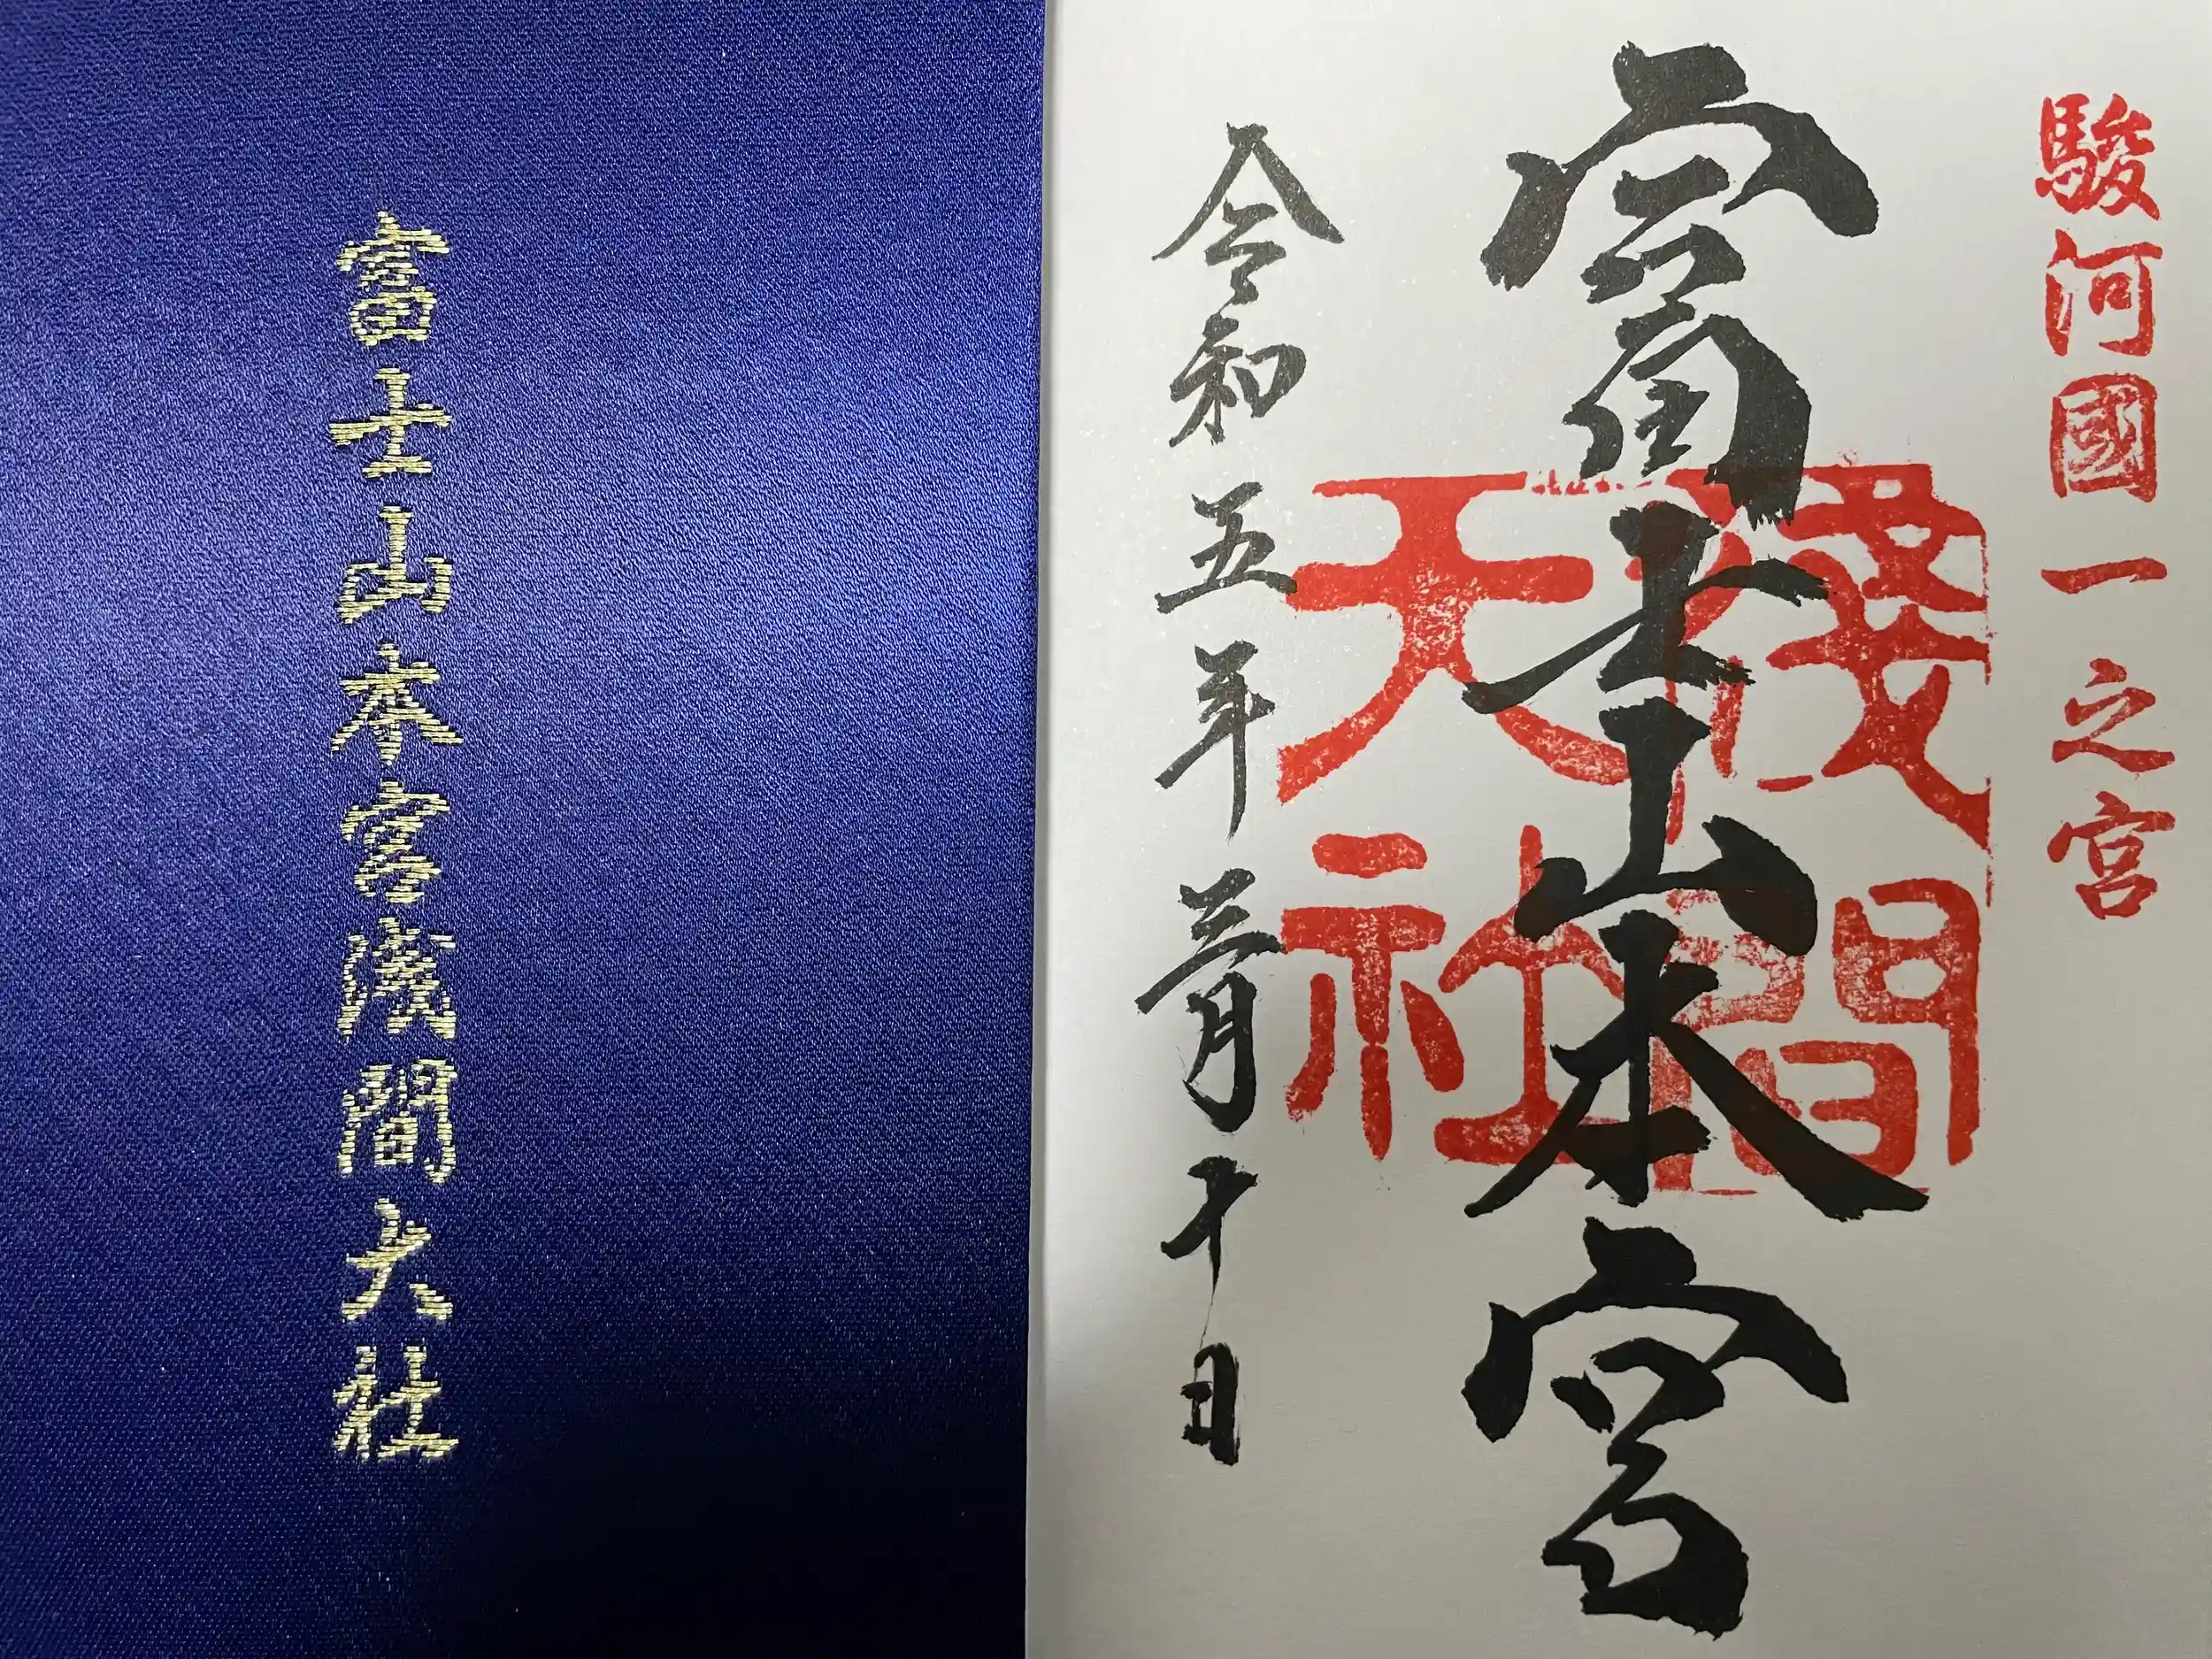 富士山本宮淺間大社
駿河國一之宮
富士山本宮
淺間
大社
令和五年三月十日